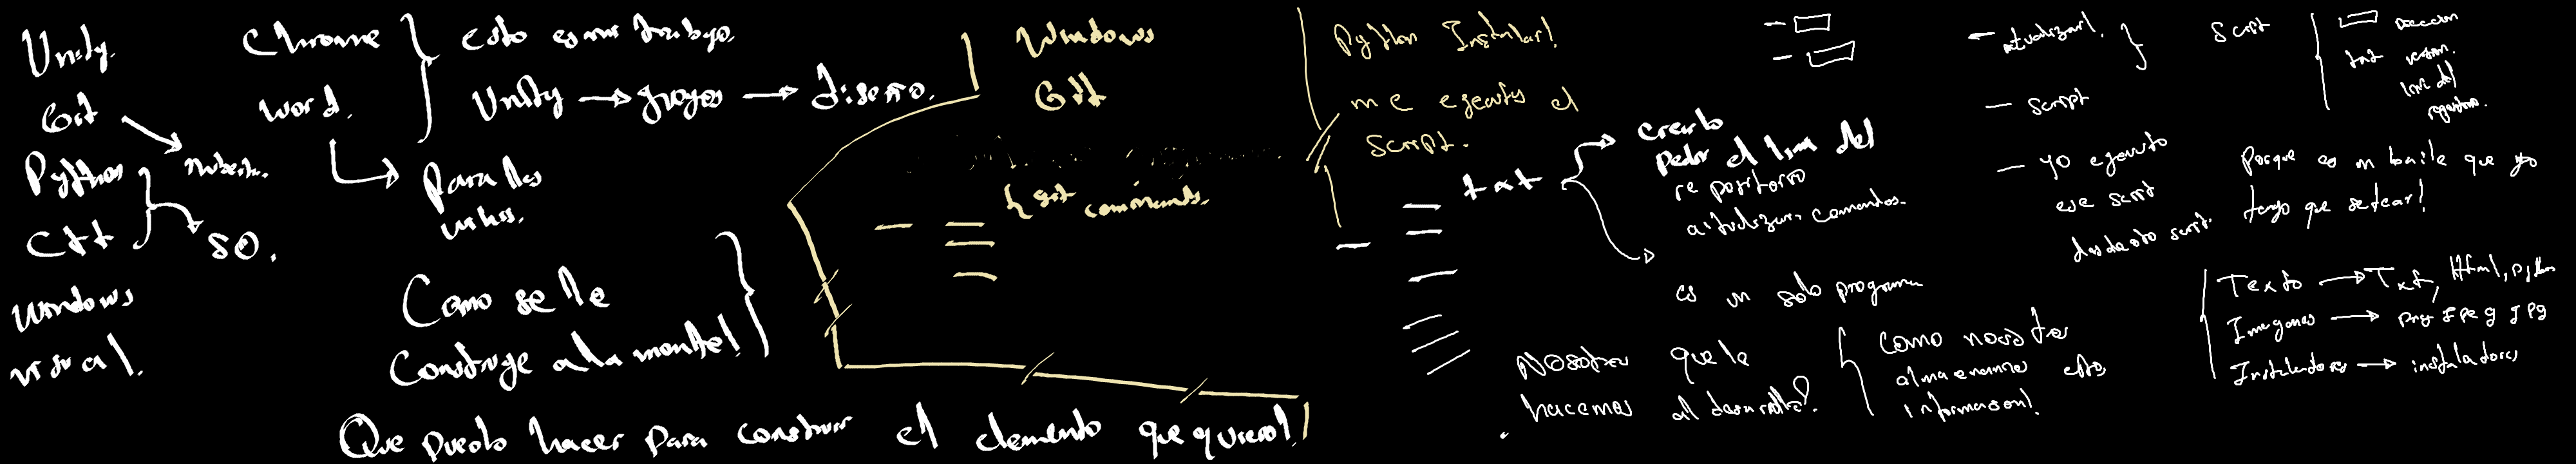 Unity.
Git
Python
C++
windows
visual.
SO.
Chrome
word.
Esto es mi trabajo.
Unity → juegos → diseño.
Para las
Como se le
Construye a la mente!
Que puedo hacer para construir el elemento que quiero!
Windows
Git
git commands.
Python Instalar!
me ejecutes el
Script.
txt
crearlo
pedir el link del
repositorio
actualizar comandos.
es un solo programa
Nosotros que le
hacemos al desarrollo?
Como nosotros
almacenamos esta
informacion!
actualizar!
Script
yo ejecuto
ese script
desde otro script.
Script
Direccion
txt version.
link del
repositorio.
Porque es un baile que yo
tengo que setear!
Texto → Txt, Html, Python
Imagenes → png jpeg jpg
Instaladores → instaladores